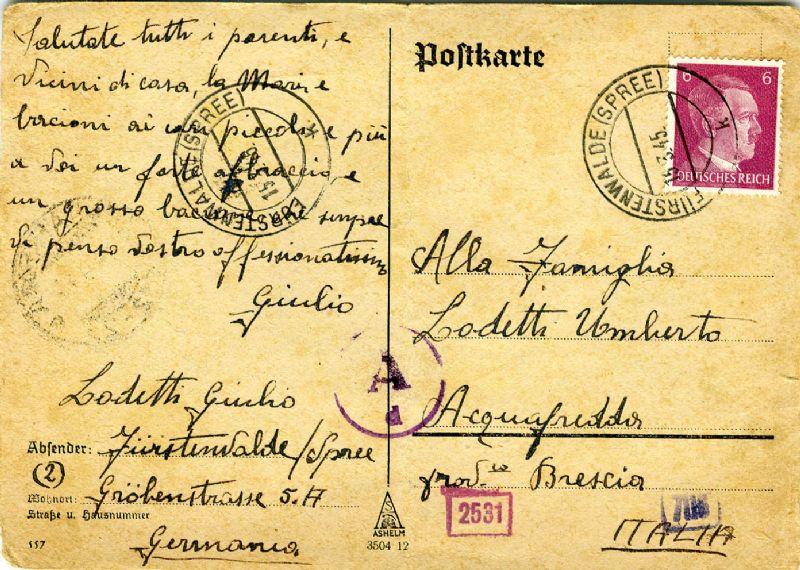 Salutate tutti i parenti, e
vicini di casa, la Mari, e
bacioni ai cari piccoli e più
a voi un forte abbraccio, e
un grosso bacione che sempre
vi penso vostro affessionatissimo
Giulio
Lodetti Giulio
Absender: Fürstenwalde/Spree
2
Wohnort: Gröbenstrasse 5.A
Straße u. Hausnummer
Germania
557
ASHELM
3504 12
Postkarte
6 6
DEUTSCHES REICH
FÜRSTENWALDE (SPREE)
k
FÜRSTENWALDE (SPREE)
k
Alla Famiglia
Lodetti Umberto
Acquafredda
prov.cia Brescia
ITALIA
A
d
2531